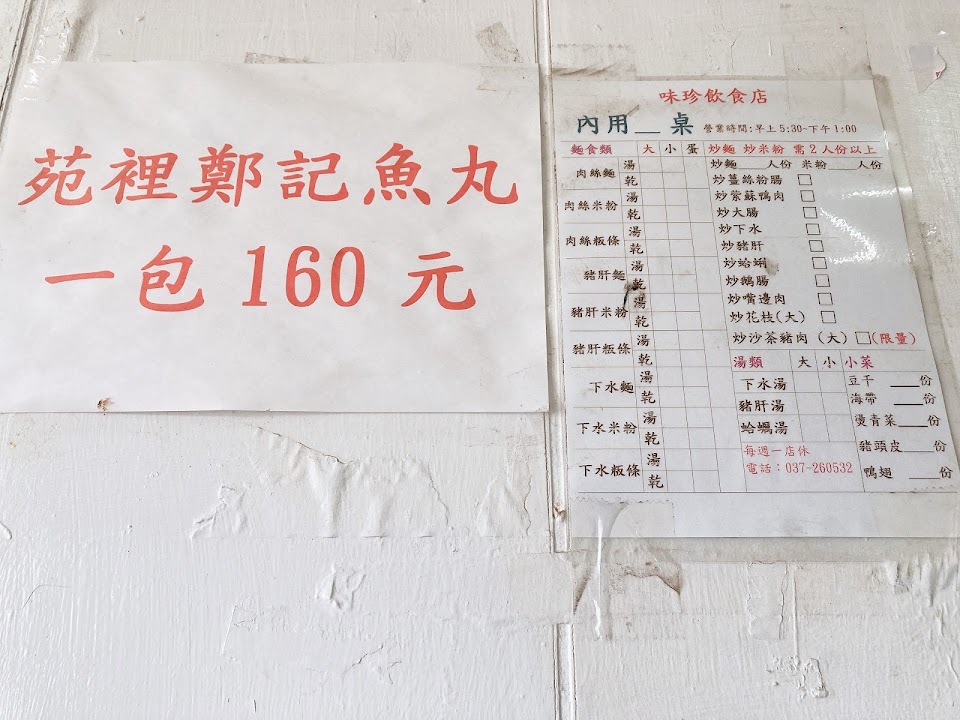 苑裡鄭記魚丸
一包 160 元
味珍飲食店
內用__桌 營業時間:早上5:30~下午1:00
麵食類 大 小 蛋 炒麵 炒米粉 需2人份以上
肉絲麵 湯 乾
肉絲米粉 湯 乾
肉絲粄條 湯 乾
豬肝麵 湯 乾
豬肝米粉 湯 乾
豬肝粄條 湯 乾
下水麵 湯 乾
下水米粉 湯 乾
下水粄條 湯 乾
炒麵___人份 米粉___人份
炒薑絲粉腸 □
炒紫蘇鴨肉 □
炒大腸 □
炒下水 □
炒豬肝 □
炒蛤蜊 □
炒鵝腸 □
炒嘴邊肉 □
炒花枝(大) □
炒沙茶豬肉 (大) □(限量)
湯類 大 小
下水湯
豬肝湯
蛤蠣湯
小菜
豆干 ___份
海帶 ___份
燙青菜___份
豬頭皮___份
鴨翅 ___份
每週一店休
電話:037-260532